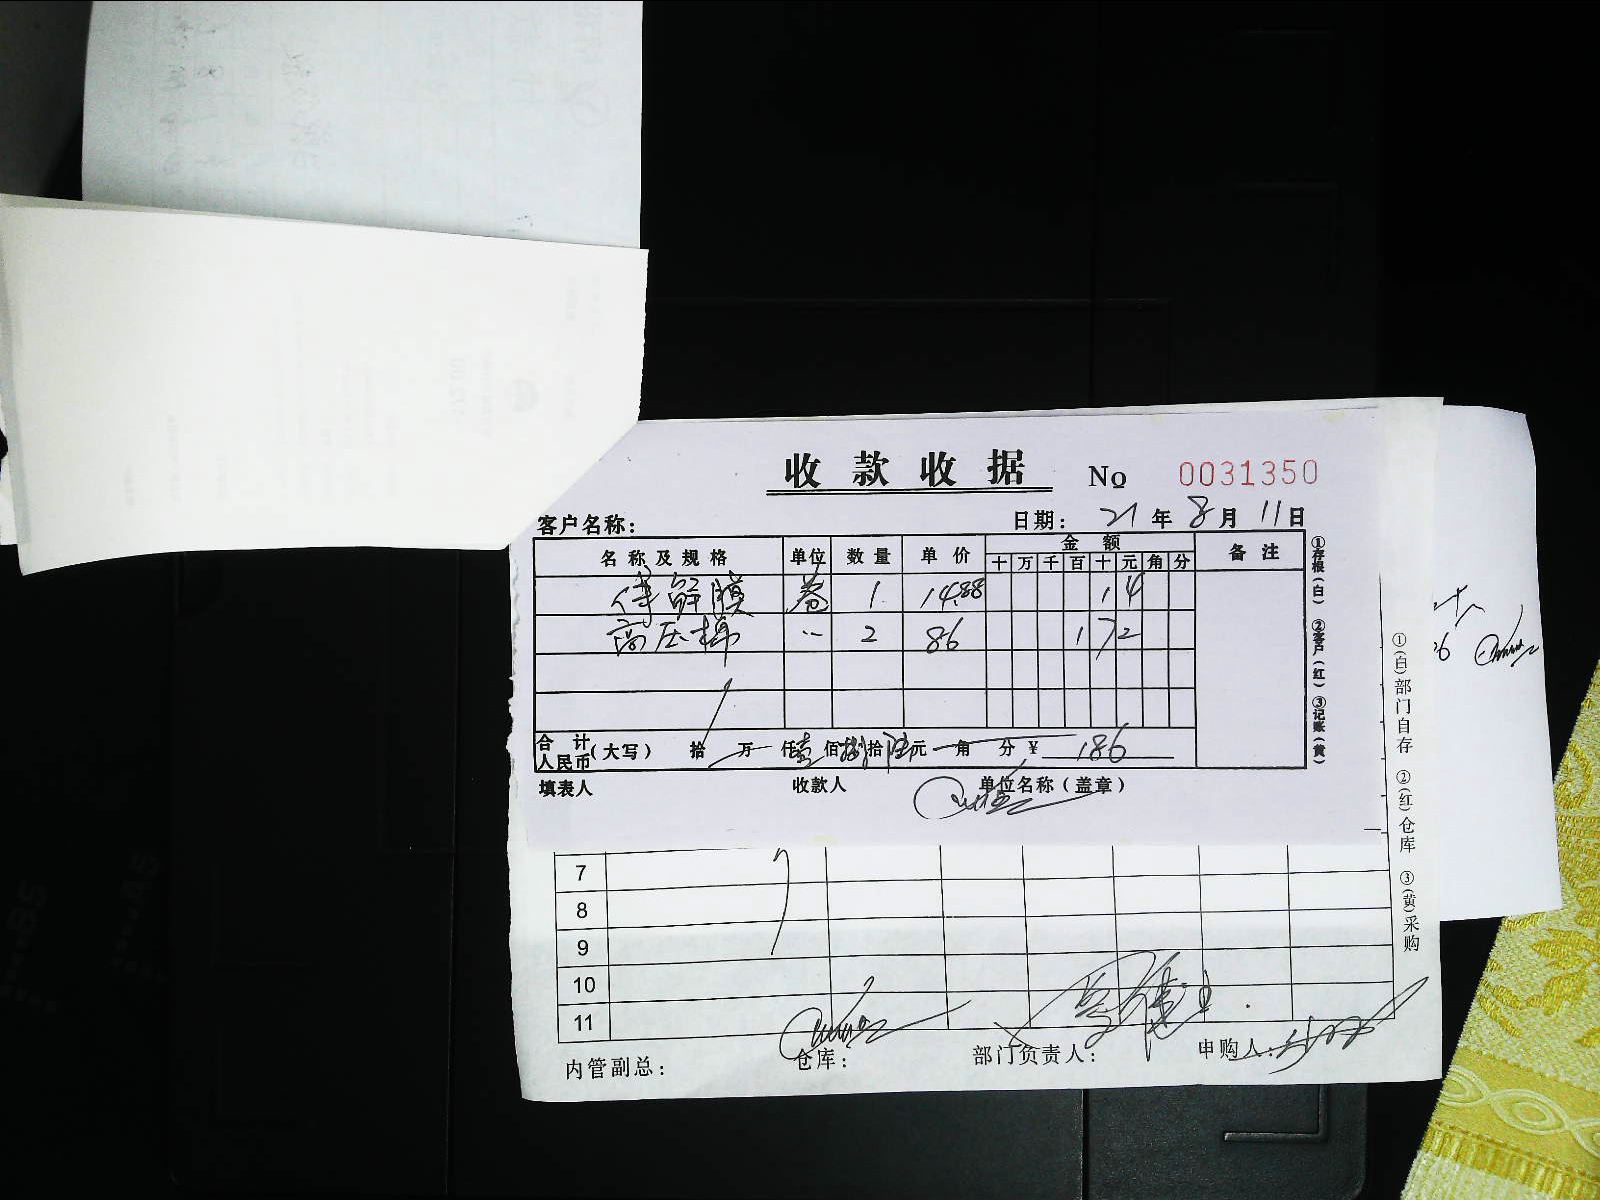 收款收据 No 0031350
客户名称: 日期: 21 年 8 月 11 日
名称及规格 单位 数量 单价 金额 备注
十 万 千 百 十 元 角 分
保鲜膜 卷 1 14.88 1 4
高压棉 2 86 1 7 2
合计人民币(大写) 拾 万 仟 壹 佰 捌 拾 陆 元 角 分 ¥ 186
填表人 收款人 单位名称(盖章)
①存根(白) ②客户(红) ③记账(黄)
7
8
9
10
11
内管副总: 仓库: 部门负责人: 申购人:
①(白)部门自存 ②(红)仓库 ③(黄)采购